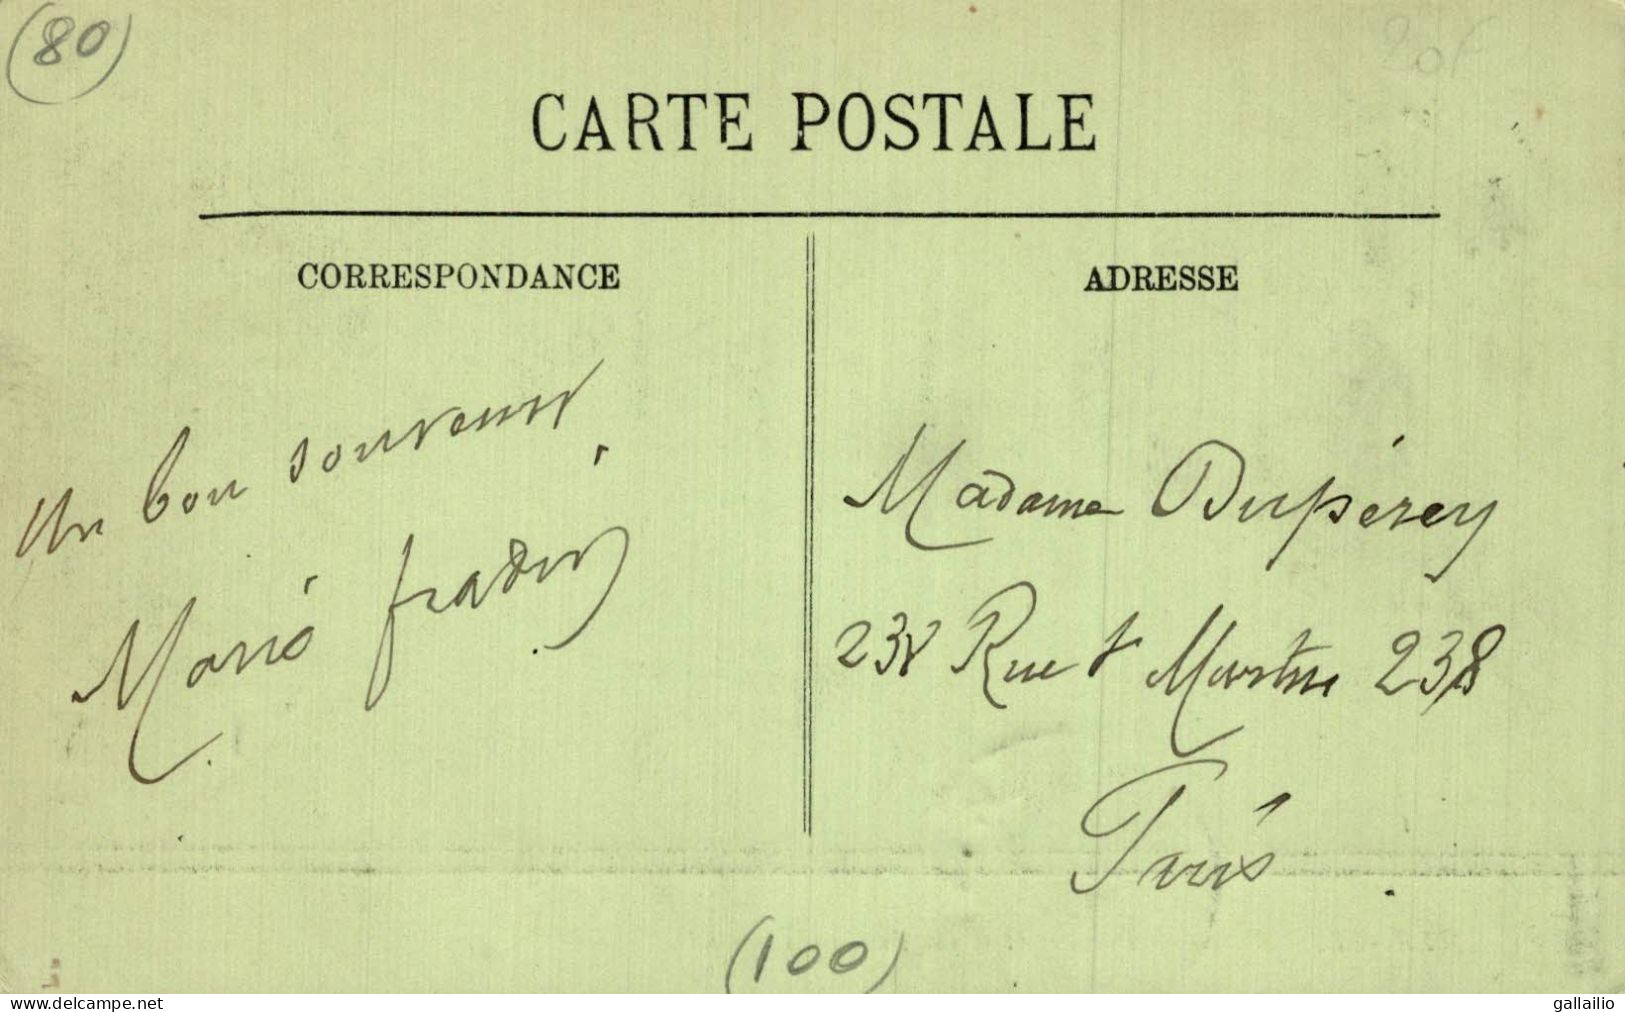 (80)
20f
CARTE POSTALE
CORRESPONDANCE
Un bon souvenir
Marie fradin
ADRESSE
Madame Dupérey
238 Rue St Martin 238
Paris
(100)
www.delcampe.net
gallailio